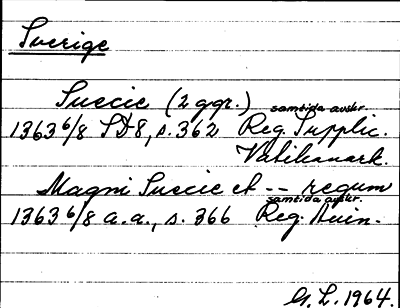 Sverige
Suecie (2 ggr.)
samtida avskr.
1363 6/8 SD 8, s. 362 Reg. Supplic.
Vatikanark.
Magni Suecie et -- regum
samtida avskr.
1363 6/8 a.a., s. 366 Reg. Avin.
G. L. 1964.